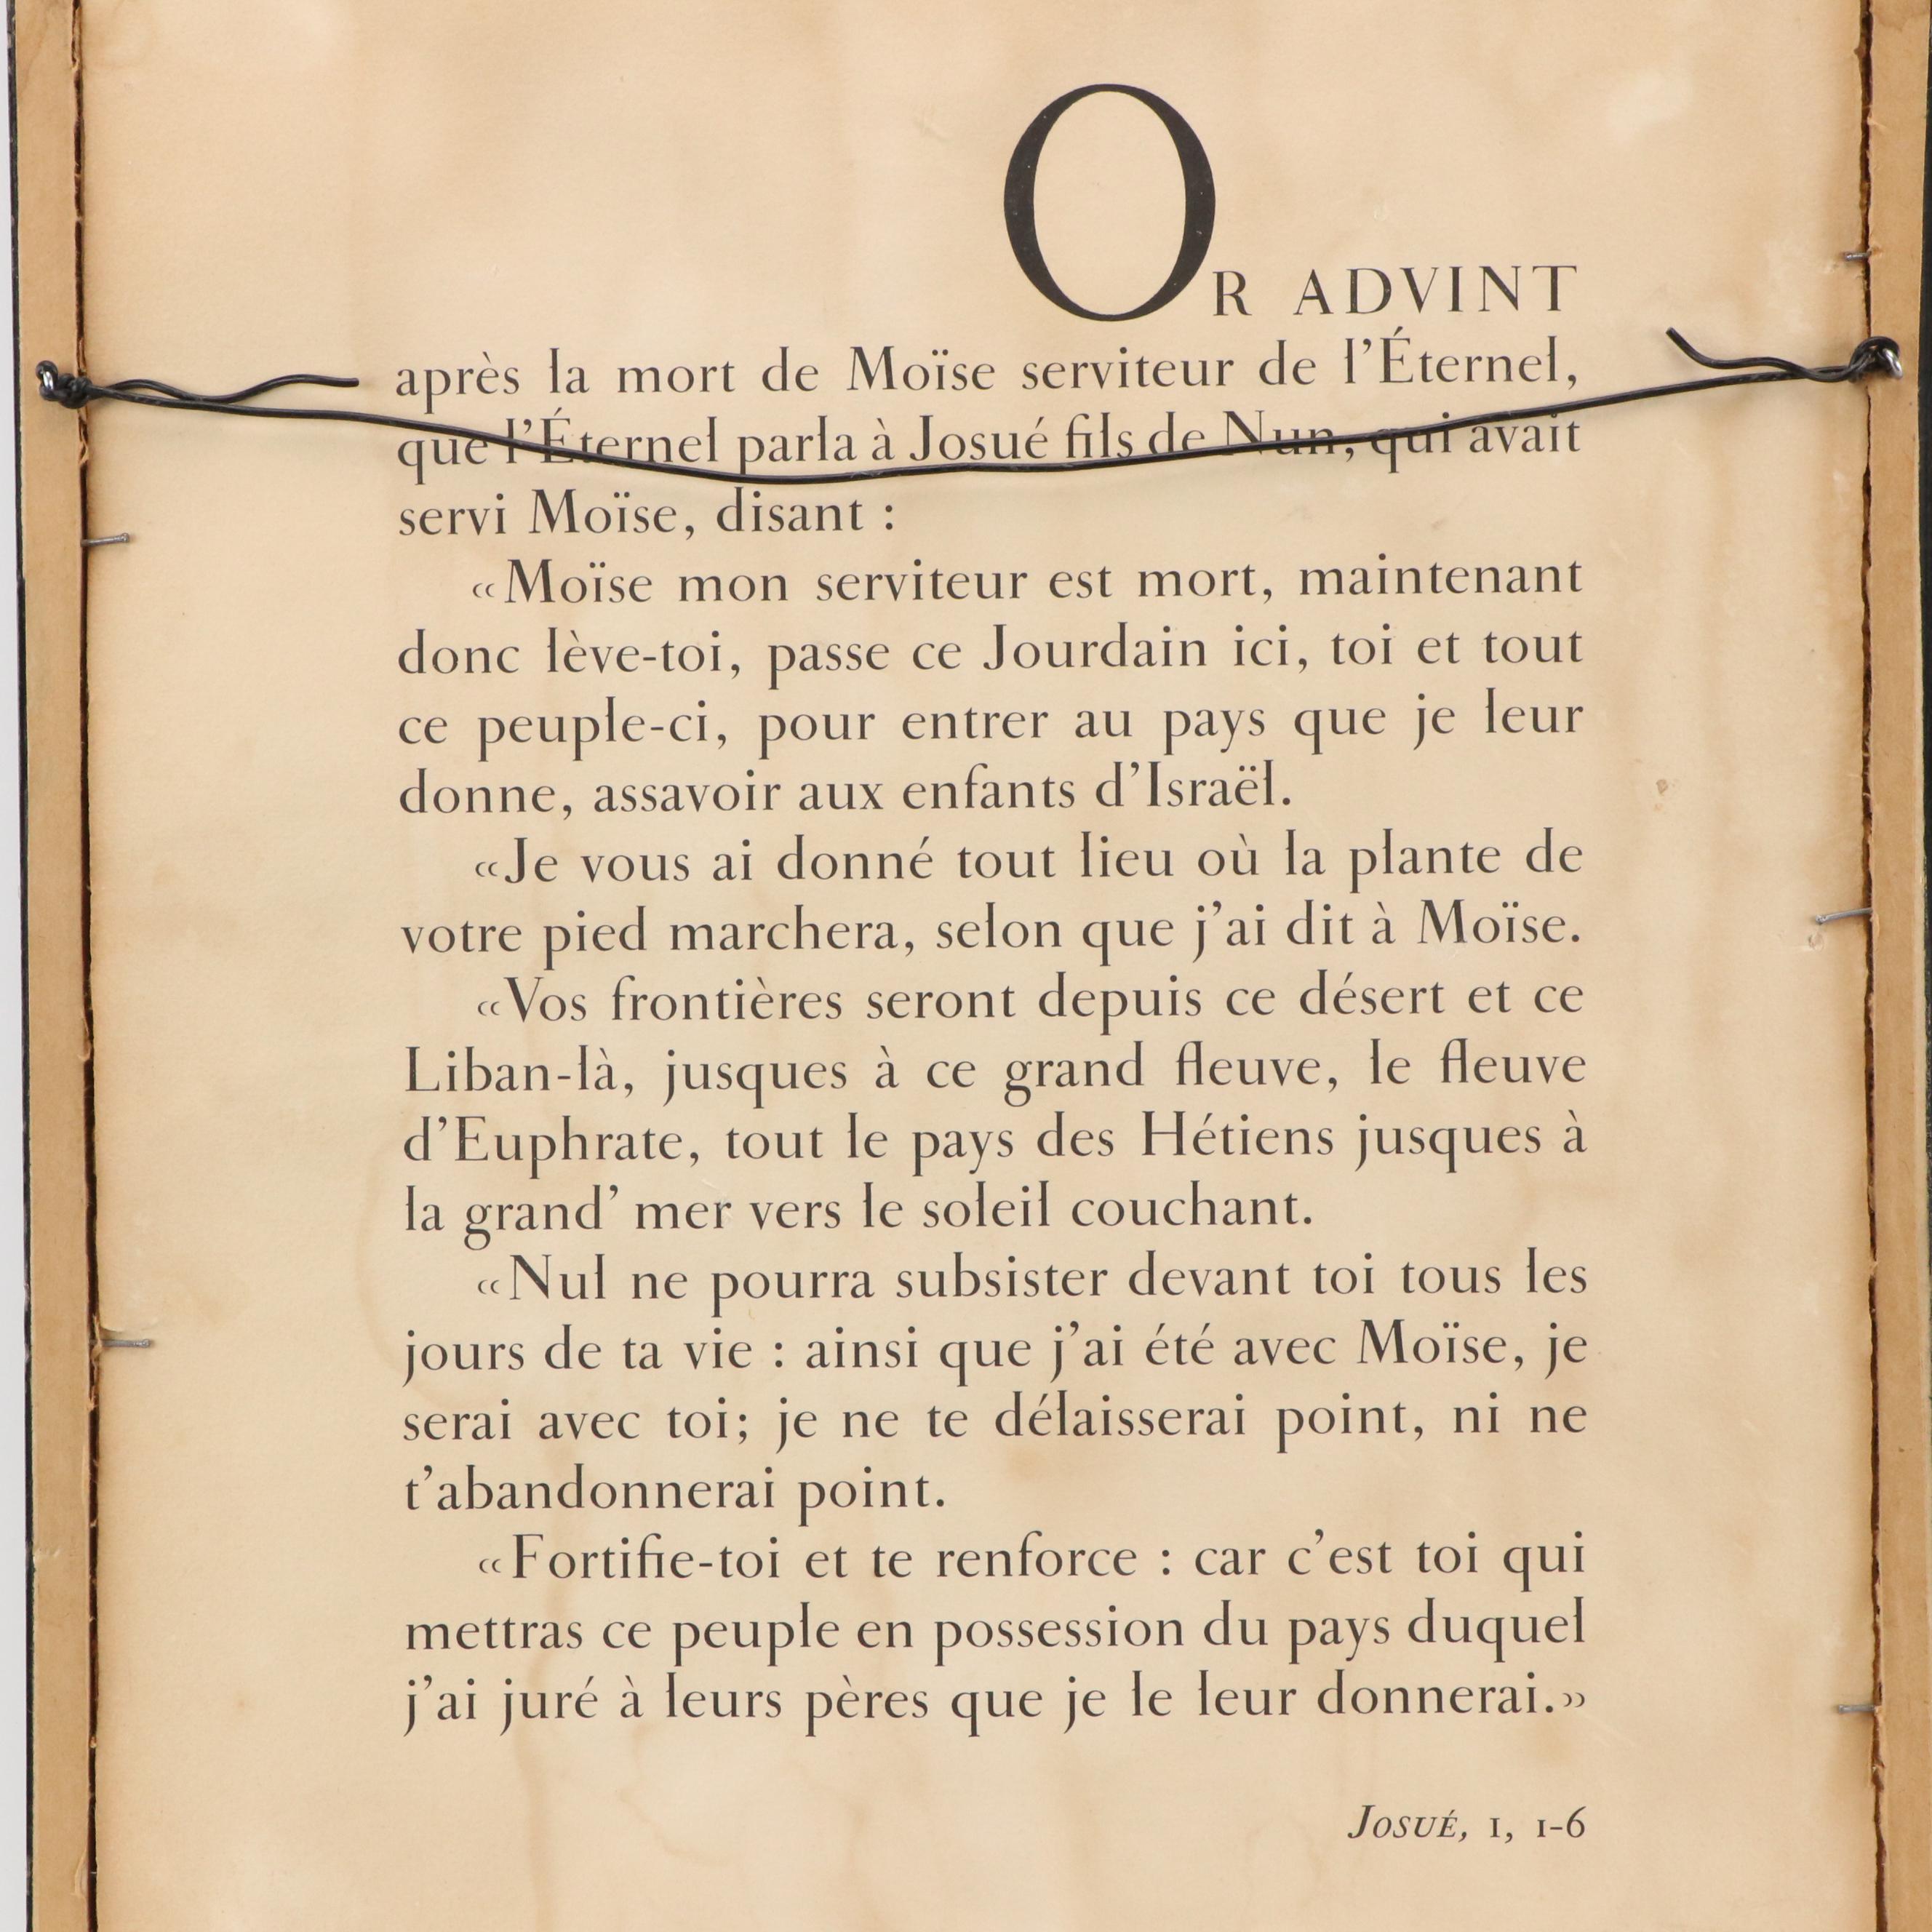 OR ADVINT
après la mort de Moïse serviteur de l’Éternel,
que l’Éternel parla à Josué fils de Nun, qui avait
servi Moïse, disant :
«Moïse mon serviteur est mort, maintenant
donc lève-toi, passe ce Jourdain ici, toi et tout
ce peuple-ci, pour entrer au pays que je leur
donne, assavoir aux enfants d’Israël.
«Je vous ai donné tout lieu où la plante de
votre pied marchera, selon que j’ai dit à Moïse.
«Vos frontières seront depuis ce désert et ce
Liban-là, jusques à ce grand fleuve, le fleuve
d’Euphrate, tout le pays des Hétiens jusques à
la grand’ mer vers le soleil couchant.
«Nul ne pourra subsister devant toi tous les
jours de ta vie : ainsi que j’ai été avec Moïse, je
serai avec toi; je ne te délaisserai point, ni ne
t’abandonnerai point.
«Fortifie-toi et te renforce : car c’est toi qui
mettras ce peuple en possession du pays duquel
j’ai juré à leurs pères que je le leur donnerai.»
JOSUÉ, I, 1-6